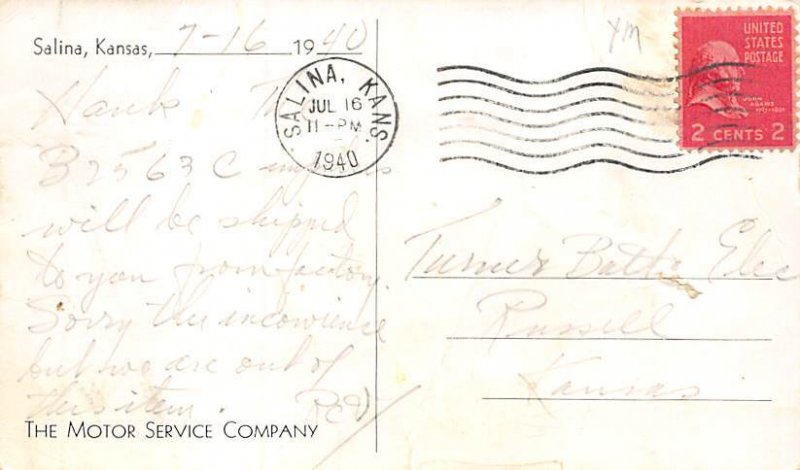 Salina, Kansas, 7-16 1940
Hank:
B2563C
will be shipped
to you from factory.
Sorry this incowience
but we are out of
this item.
THE MOTOR SERVICE COMPANY
SALINA, KANS.
JUL 16
11-PM
1940
UNITED
STATES
POSTAGE
JOHN
ADAMS
2 CENTS 2
Turner Batty Elec
Russell
Kansas